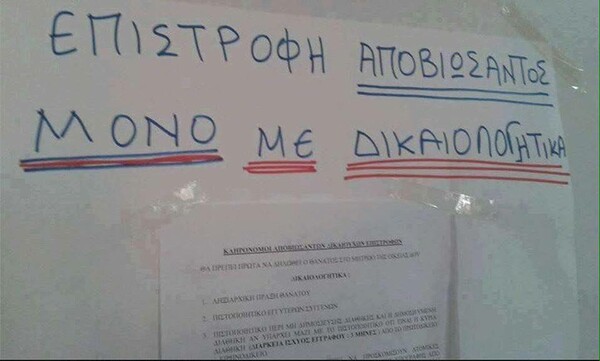 ΕΠΙΣΤΡΟΦΗ ΑΠΟΒΙΩΣΑΝΤΟΣ
ΜΟΝΟ ΜΕ ΔΙΚΑΙΟΛΟΓΗΤΙΚΑ
ΚΛΗΡΟΝΟΜΟΙ ΑΠΟΒΙΩΣΑΝΤΩΝ ΔΙΚΑΙΟΥΧΩΝ ΕΠΙΣΤΡΟΦΩΝ
ΘΑ ΠΡΕΠΕΙ ΠΡΩΤΑ ΝΑ ΔΗΛΩΘΕΙ Ο ΘΑΝΑΤΟΣ ΣΤΟ ΜΗΤΡΩΟ ΤΗΣ ΟΙΚΕΙΑΣ ΔΟΥ
ΔΙΚΑΙΟΛΟΓΗΤΙΚΑ :
1. ΛΗΞΙΑΡΧΙΚΗ ΠΡΑΞΗ ΘΑΝΑΤΟΥ
2. ΠΙΣΤΟΠΟΙΗΤΙΚΟ ΕΓΓΥΤΕΡΩΝ ΣΥΓΓΕΝΩΝ
3. ΠΙΣΤΟΠΟΙΗΤΙΚΟ ΠΕΡΙ ΜΗ ΔΗΜΟΣΙΕΥΣΗΣ ΔΙΑΘΗΚΗΣ Η ΔΗΜΟΣΙΕΥΜΕΝΗ
ΔΙΑΘΗΚΗ ΑΝ ΥΠΑΡΧΕΙ ΜΑΖΙ ΜΕ ΤΟ ΠΙΣΤΟΠΟΙΗΤΙΚΟ ΟΤΙ ΕΙΝΑΙ Η ΚΥΡΙΑ
ΔΙΑΘΗΚΗ (ΔΙΑΡΚΕΙΑ ΙΣΧΥΟΣ ΕΓΓΡΑΦΟΥ 3 ΜΗΝΕΣ) ΑΠΟ ΤΟ ΠΡΩΤΟΔΙΚΕΙΟ